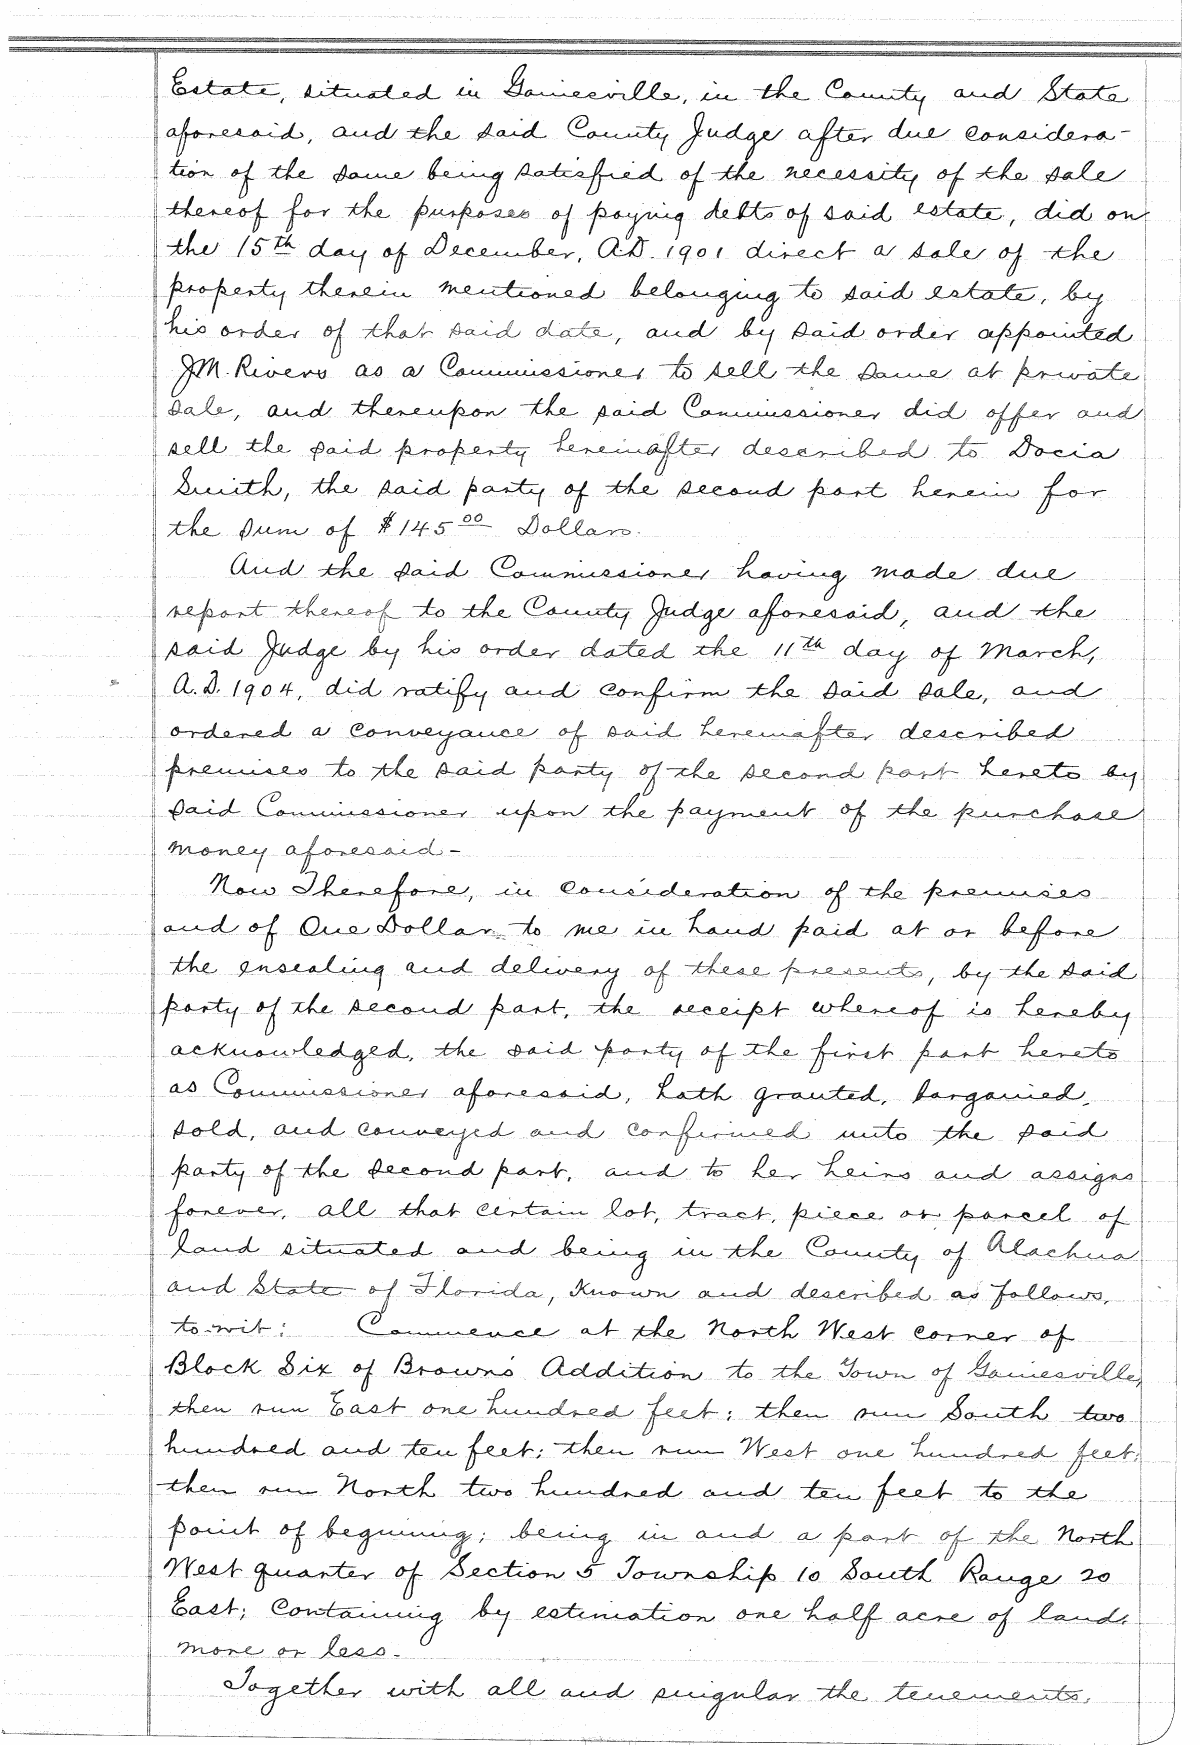 Estate, situated in Gainesville, in the County and State
aforesaid, and the said County Judge after due considera-
tion of the same being satisfied of the necessity of the sale
thereof for the purposes of paying debts of said estate, did on
the 15th day of December, A.D. 1901 direct a sale of the
property therein mentioned belonging to said estate, by
his order of that said date, and by said order appointed
J.M. Rivers as a Commissioner to sell the same at private
sale, and thereupon the said Commissioner did offer and
sell the said property hereinafter described to Docia
Smith, the said party of the second part herein for
the sum of $145 00 Dollars.
And the said Commissioner having made due
report thereof to the County Judge aforesaid, and the
said Judge by his order dated the 11th day of March,
A.D. 1904, did ratify and confirm the said sale, and
ordered a conveyance of said hereinafter described
premises to the said party of the second part hereto by
said Commissioner upon the payment of the purchase
money aforesaid-
Now Therefore, in consideration of the premises
and of One Dollar to me in hand paid at or before
the ensealing and delivery of these presents, by the said
party of the second part, the receipt whereof is hereby
acknowledged, the said party of the first part hereto
as Commissioner aforesaid, hath granted, bargained,
sold, and conveyed and confirmed unto the said
party of the second part, and to her heirs and assigns
forever, all that certain lot, tract, piece or parcel of
land situated and being in the County of Alachua
and State of Florida, known and described as follows,
to-wit: Commence at the North West corner of
Block Six of Brown's Addition to the Town of Gainesville,
then run East one hundred feet; then run South two
hundred and ten feet; then run West one hundred feet;
then run North two hundred and ten feet to the
point of beginning; being in and a part of the North
West quarter of Section 5 Township 10 South Range 20
East; containing by estimation one half acre of land,
more or less.
Together with all and singular the tenements,